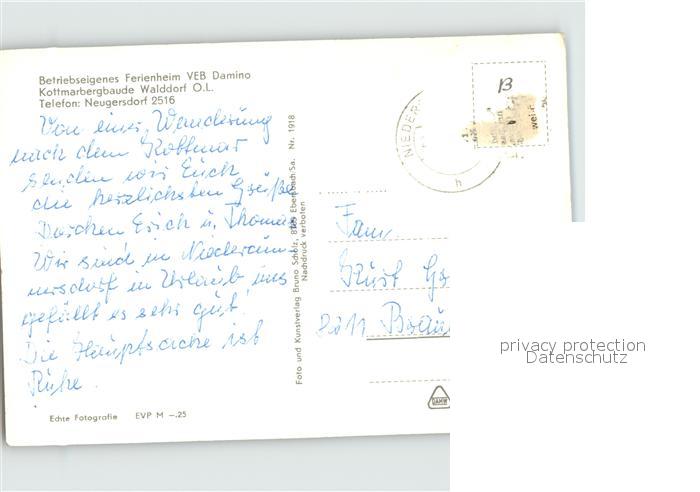 Betriebseigenes Ferienheim VEB Damino
Kottmarbergbaude Walddorf O.L.
Telefon: Neugersdorf 2516
Von einer Wanderung
nach dem Kottmar
senden wir Euch
die herzlichsten Grüße
Erich u. Thomas
Wir sind in Niedercun-
nersdorf in Urlaub, uns
gefällt es sehr gut.
Die Hauptsache ist
Ruhe.
Echte Fotografie EVP M –.25
Foto und Kunstverlag Bruno Scholz, Ebersbach/Sa. Nr. 1918
Nachdruck verboten
B
NIEDER
h
Fam.
Kurt
privacy protection
Datenschutz
DAMW